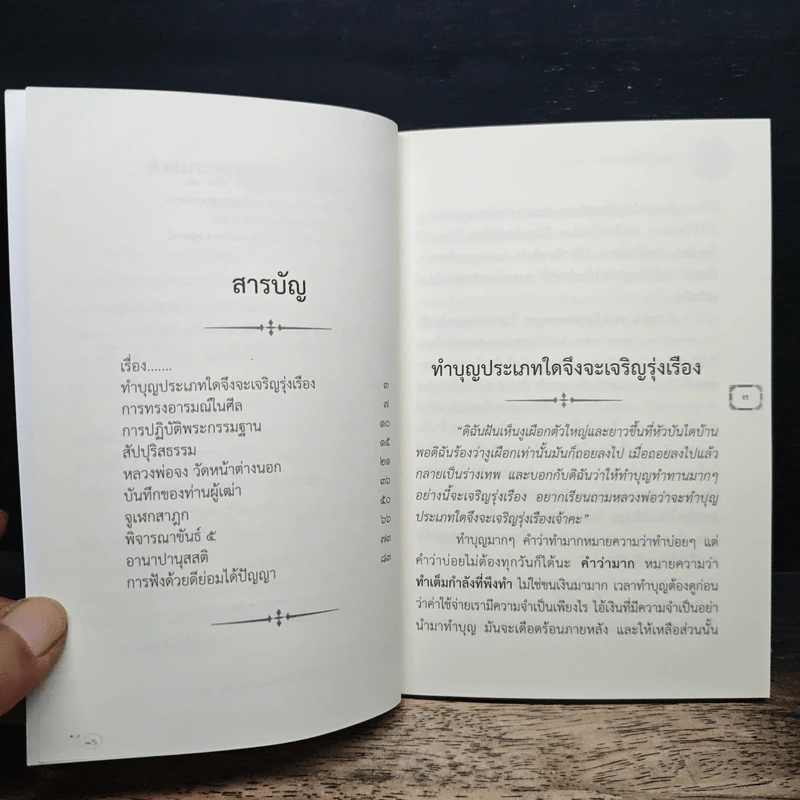 สารบัญ
เรื่อง.......
ทำบุญประเภทใดจึงจะเจริญรุ่งเรือง ๓
การทรงอารมณ์ในศีล ๗
การปฏิบัติพระกรรมฐาน ๑๐
สัปปุริสธรรม ๑๕
หลวงพ่อจง วัดหน้าต่างนอก ๒๑
บันทึกของท่านผู้เฒ่า ๓๖
จูเฬกสาฎก ๕๐
พิจารณาขันธ์ ๕ ๖๖
อานาปานุสสติ ๗๓
การฟังด้วยดีย่อมได้ปัญญา ๘๓
ทำบุญประเภทใดจึงจะเจริญรุ่งเรือง
๓
“ดิฉันฝันเห็นงูเผือกตัวใหญ่และยาวขึ้นที่หัวบันไดบ้าน
พอดิฉันร้องว่างูเผือกเท่านั้นมันก็ถอยลงไป เมื่อถอยลงไปแล้ว
กลายเป็นร่างเทพ และบอกกับดิฉันว่าให้ทำบุญทำทานมากๆ
อย่างนี้จะเจริญรุ่งเรือง อยากเรียนถามหลวงพ่อว่าจะทำบุญ
ประเภทใดจึงจะเจริญรุ่งเรืองเจ้าคะ”
ทำบุญมากๆ คำว่าทำมากหมายความว่าทำบ่อยๆ แต่
คำว่าบ่อยไม่ต้องทุกวันก็ได้นะ คำว่ามาก หมายความว่า
ทำเต็มกำลังที่พึงทำ ไม่ใช่ขนเงินมามาก เวลาทำบุญต้องดูก่อน
ว่าค่าใช้จ่ายเรามีความจำเป็นเพียงไร ไอ้เงินที่มีความจำเป็นอย่า
นำมาทำบุญ มันจะเดือดร้อนภายหลัง และให้เหลือส่วนนั้น